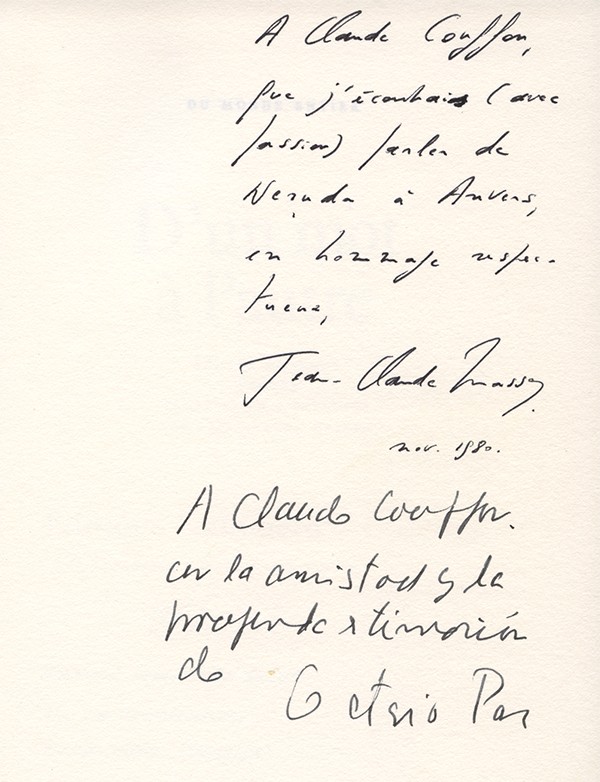 A Claude Couffon,
que j'écoutais (avec
passion) parler de
Neruda à Anvers,
en hommage respec-
tueux,
Jean-Claude Masson
nov. 1980.
A Claude Couffon.
con la amistad y la
profunda estimación
de
Octavio Paz